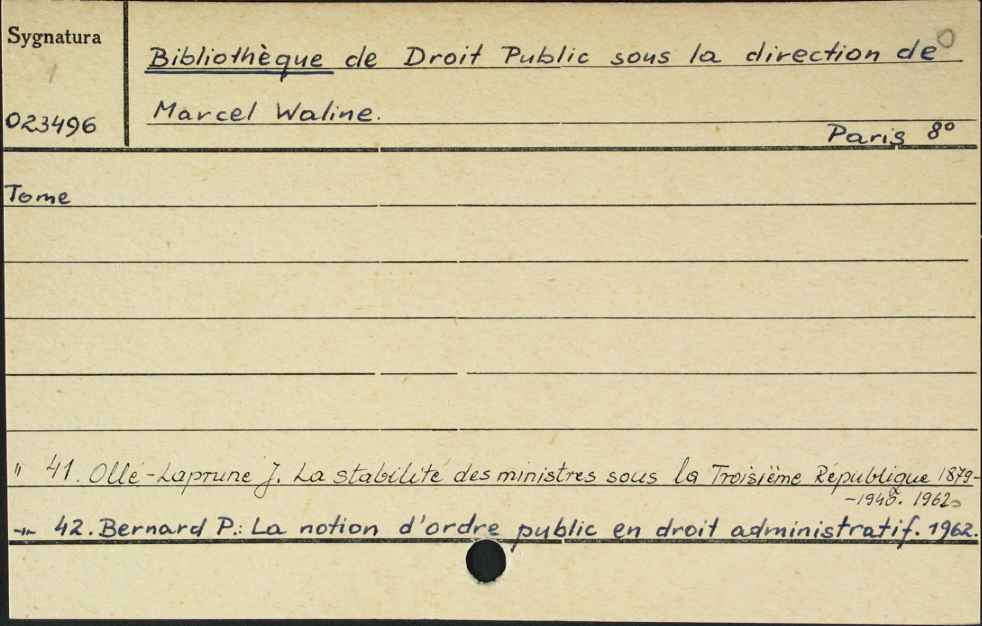 Sygnatura
Bibliothèque de Droit Public sous la direction de
023496
Marcel Waline.
Paris 8°
Tome
" 41. Ollé-Laprune J. La stabilité des ministres sous la Troisième République 1879-
-1940. 1962
-"- 42. Bernard P.: La notion d'ordre public en droit administratif. 1962.